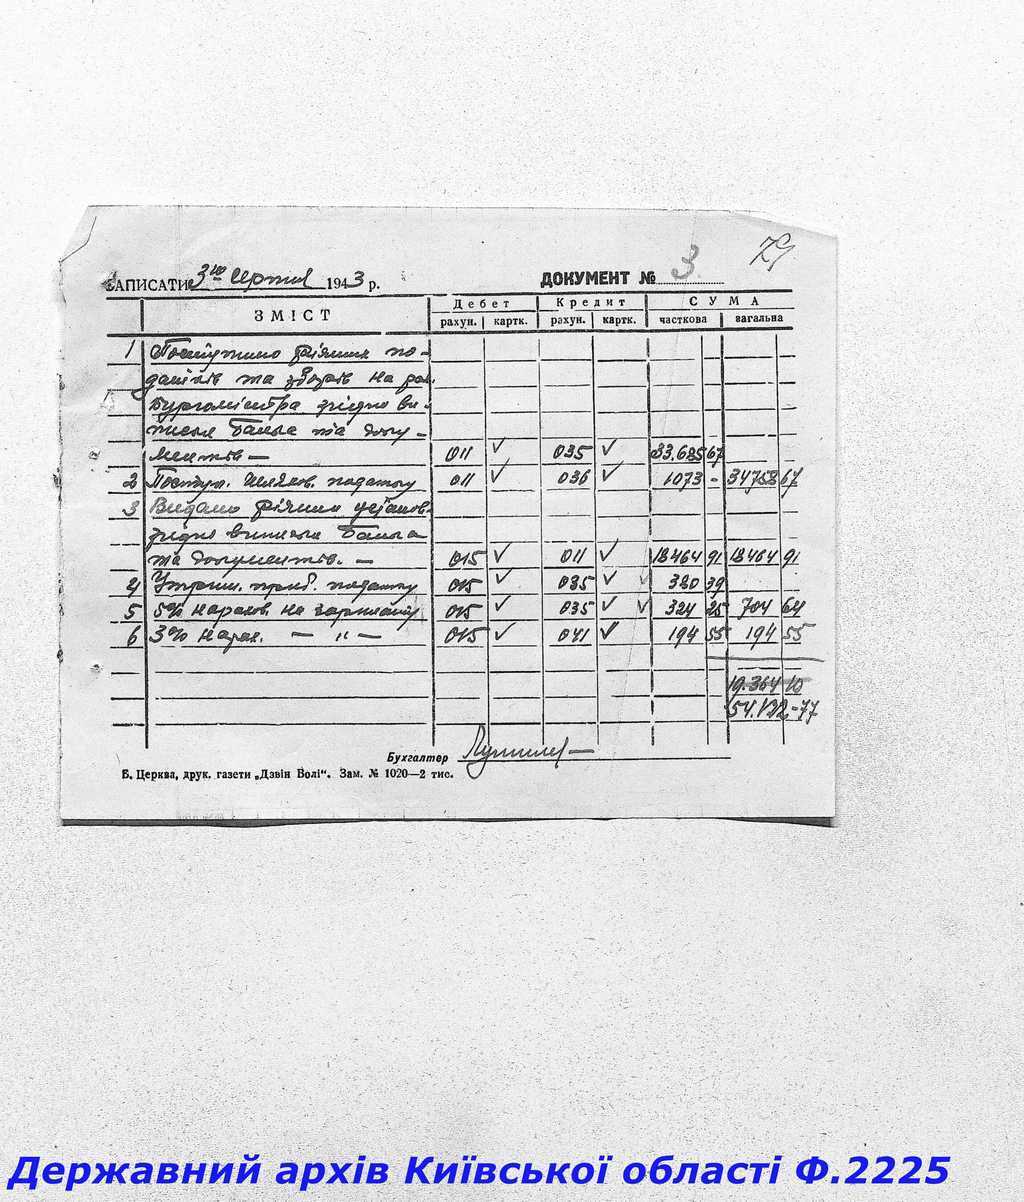 79
ЗАПИСАТИ 3го серпня 1943 р. ДОКУМЕНТ № 3
ЗМІСТ Дебет Кредит СУМА
рахун. картк. рахун. картк. часткова загальна
1 Поступило різних по-
датків та зборів на рах.
Бургомістра згідно ви-
писки Банка та доку-
ментів — 011 ✓ 035 ✓ 33.685 67
2 Поступ. податку 011 ✓ 036 ✓ 1073 - 34758 67
3 Видано різним установ.
згідно виписки Банка
та документів. — 015 ✓ 011 ✓ 18464 91 18464 91
4 Утрим. приб. податку 015 ✓ 035 ✓ 380 39
5 5% нарахов. на зарплату 015 ✓ 035 ✓ ✓ 324 25 704 64
6 3% нарах. — „ — 015 ✓ 041 ✓ 194 55 194 55
19.364 10
54.122-77
Бухгалтер
Б. Церква, друк. газети „Дзвін Волі“. Зам. № 1020—2 тис.
Державний архів Київської області Ф.2225